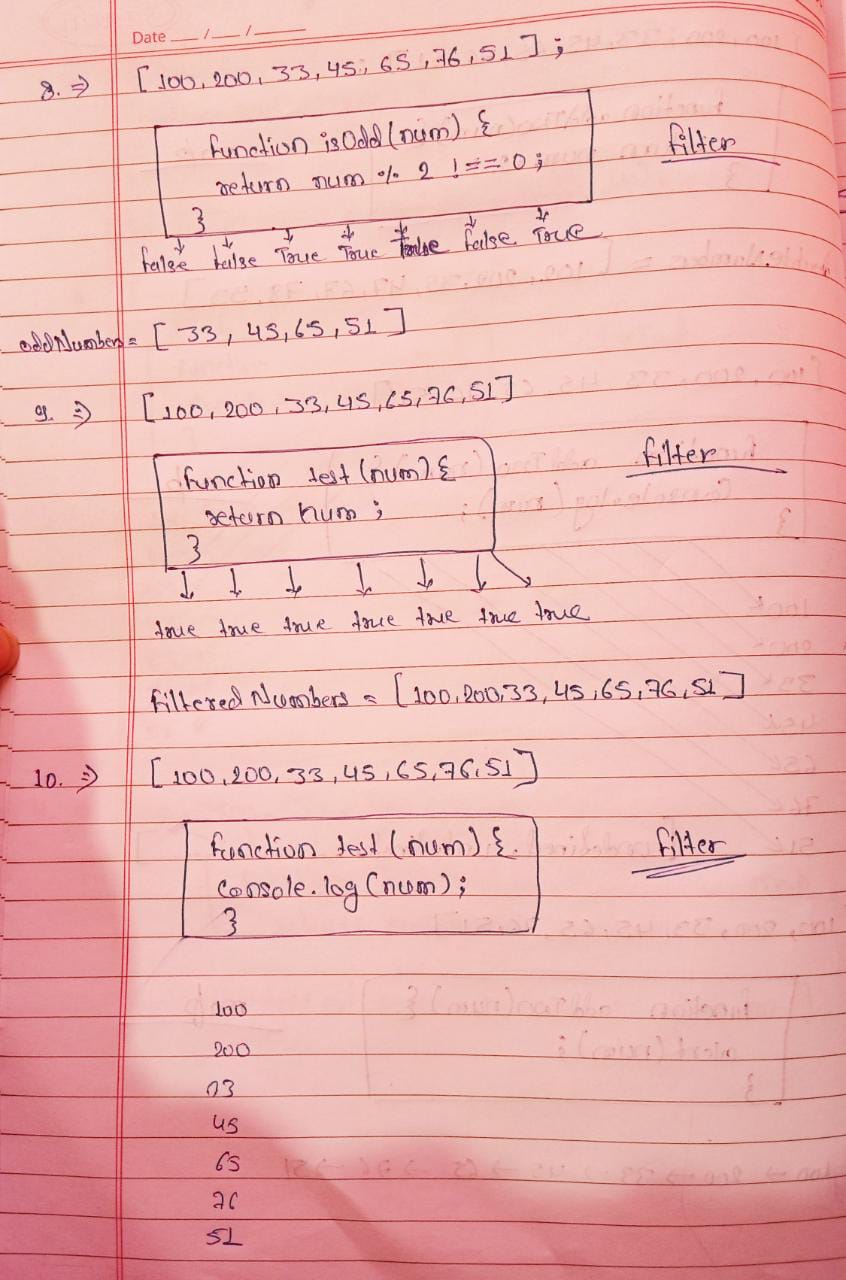 Date __/__/____
8. ⇒ [100, 200, 33, 45, 65, 76, 51];
function isOdd(num) {
return num % 2 !== 0;
}
filter
↓ ↓ ↓ ↓ ↓ ↓ ↓
false false True True false True
oddNumbers = [33, 45, 65, 51]
9. ⇒ [100, 200, 33, 45, 65, 76, 51]
function test(num) {
return num;
}
filter
↓ ↓ ↓ ↓ ↓ ↓ ↘
true true true true true true true
filtered Numbers = [100, 200, 33, 45, 65, 76, 51]
10. ⇒ [100, 200, 33, 45, 65, 76, 51]
function test(num) {
console.log(num);
}
filter
100
200
33
45
65
76
51